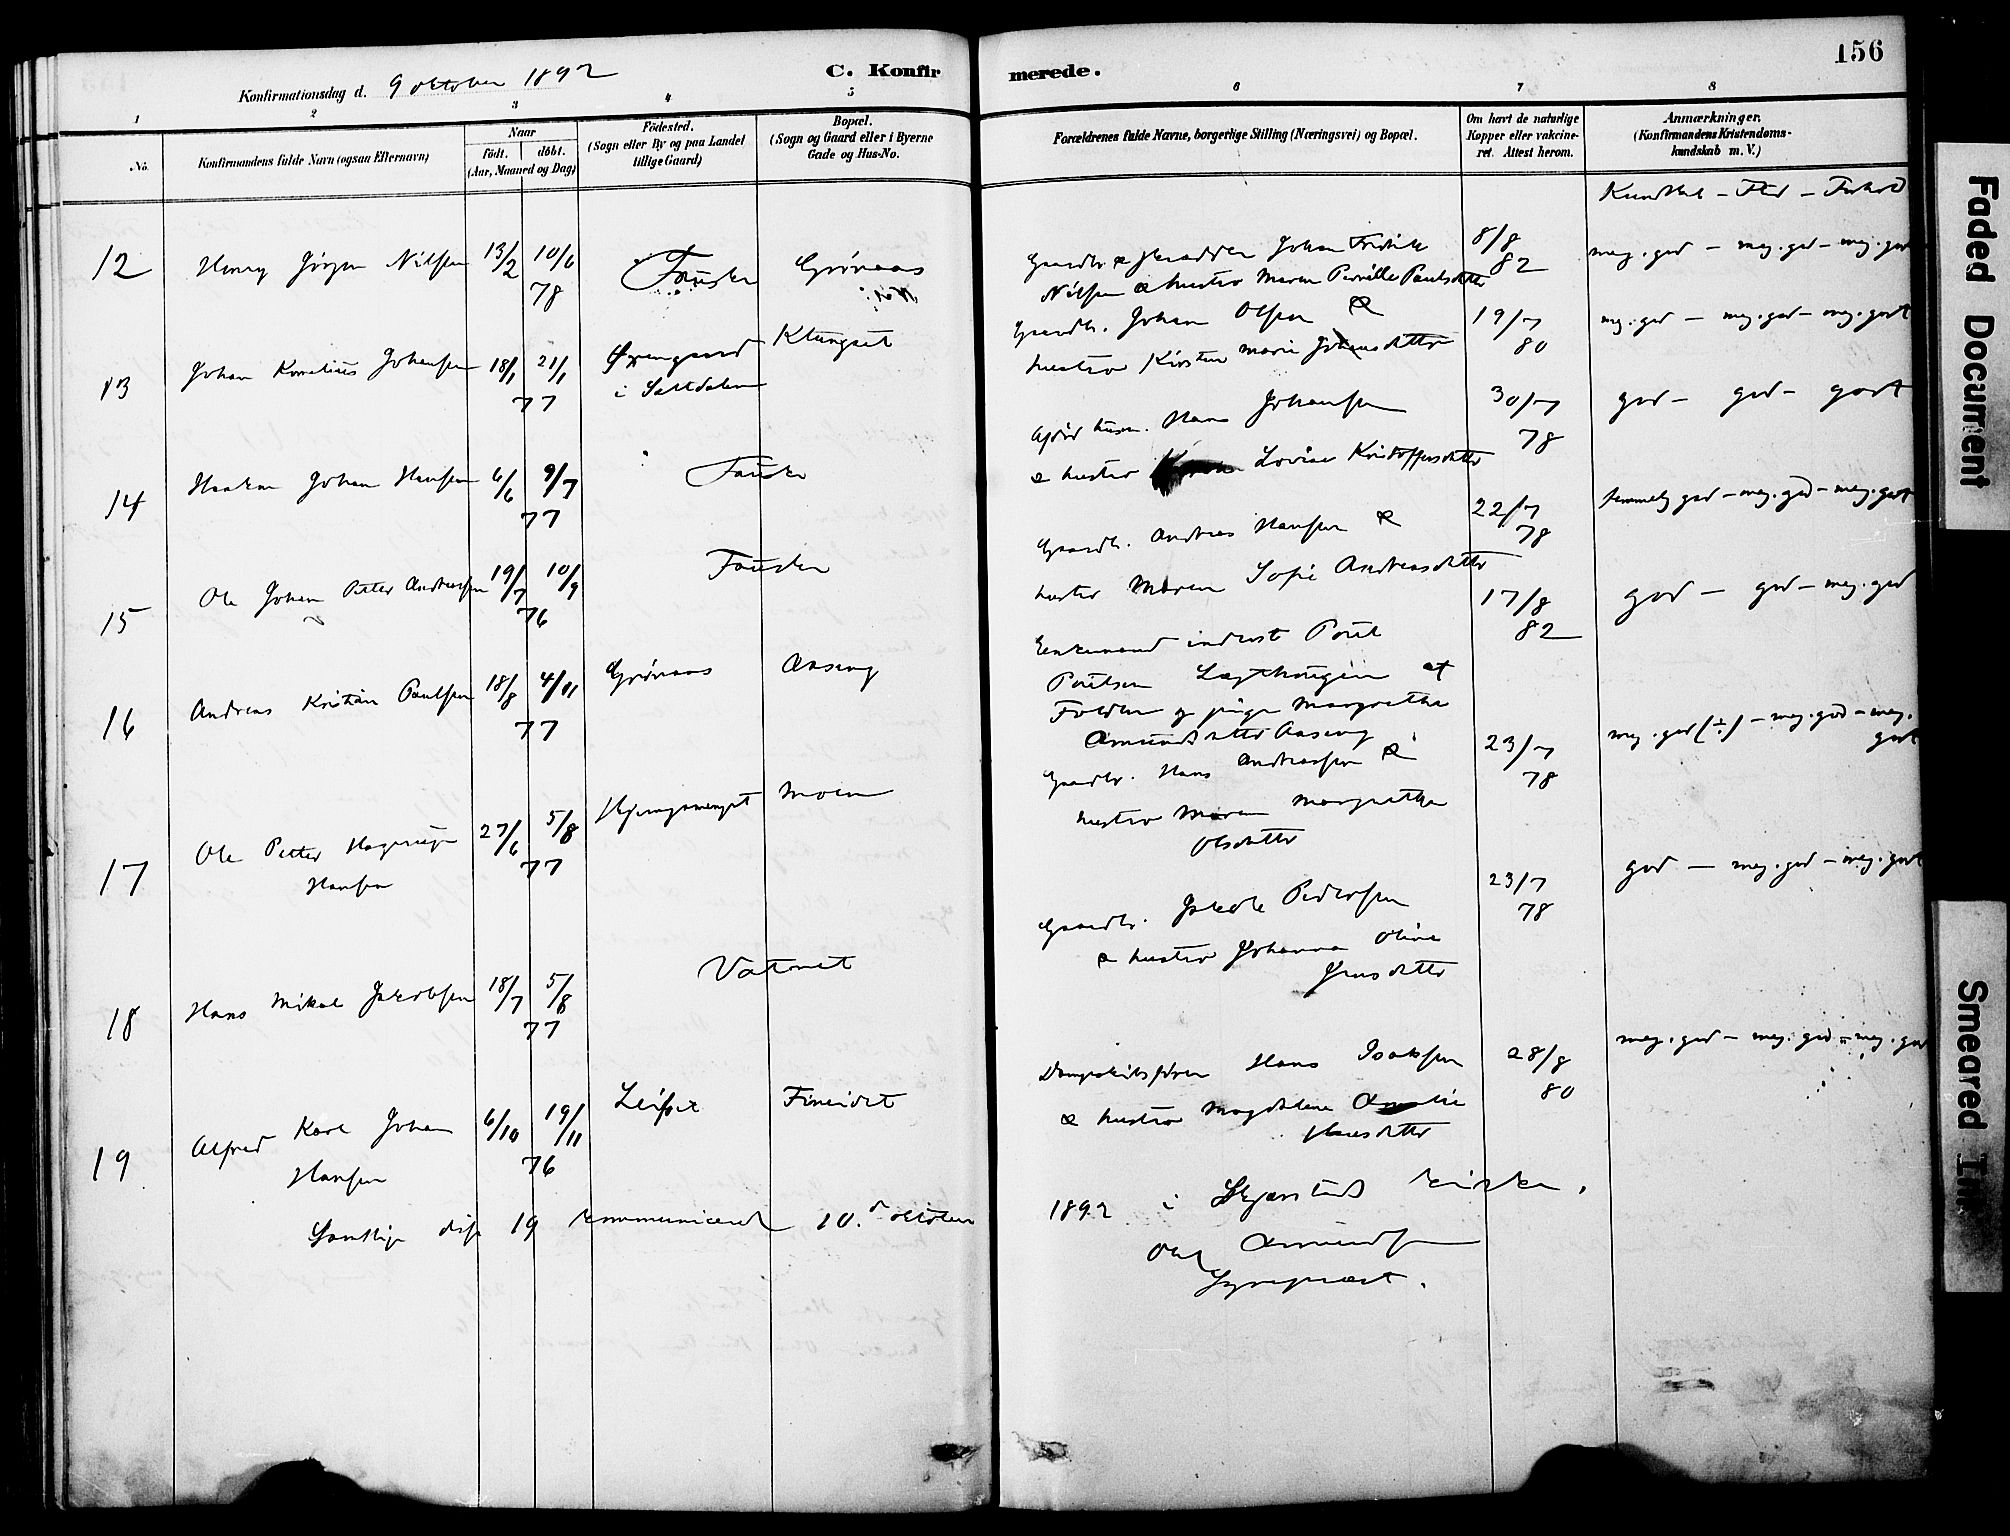 156
Konfirmationsdag d. 9 oktober 1892
C. Konfirmerede.
1 2 3 4 5 6 7 8
No.
Konfirmandens fulde Navn (ogsaa Efternavn)
Naar
födt. döbt.
(Aar, Maaned og Dag)
Födested.
(Sogn eller By og paa Landet
tillige Gaard)
Bopæl.
(Sogn og Gaard eller i Byerne
Gade og Hus-No.
Forældrenes fulde Navne, borgerlige Stilling (Næringsvei) og Bopæl.
Om havt de naturlige
Kopper eller vakcine-
ret. Attest herom.
Anmærkninger.
(Konfirmandens Kristendoms-
kundskab m. V.)
Kundskab - Flid - Forhold
12 Henry Jørgen Nilsen 13/2 10/6 78 Fauske Grønaas
Gaardbr. & Johan Fredrik 8/8 82 meg. god - meg. god - meg. godt
Nilsen & hustru Maren Pernille Paulsdatter
13 Johan Kornelius Johansen 18/1 21/1 77 Øxengaard i Saltdalen Klungset
Gaardbr. Johan Olsen & 19/7 80 meg. god - meg. god - meg. godt
hustru Kirsten Marie Johansdatter
14 Haakon Johan Hansen 6/6 9/7 77 Fauske
Hans Johansen 30/7 78 god - god - godt
& hustru Lovise Kristoffersdatter
15 Ole Johan Petter Andreassen 19/7 10/9 76 Fauske
Gaardbr. Andreas Hansen & 22/7 78 temmelig god - meg. god - meg. godt
hustru Maren Sofie Andreasdatter
16 Andreas Kristian Paulsen 18/8 4/11 77 Grønaas Aaseng
Enkemand inderst Poul 17/8 82 god - god - meg. god
Poulsen af
Folden og pige Margrethe
Amundsdatter Aaseng
17 Ole Petter Hagerup
Hansen 27/6 5/8 77 Moen
Gaardbr. Hans Andreassen & 23/7 78 meg. god (÷) - meg. god - meg.
godt
hustru Maren Margrethe
Olsdatter
18 Hans Mikal Jakobsen 18/7 5/8 77 Vatnet
Gaardbr. Jakob Pedersen 23/7 78 god - meg. god - meg. godt
& hustru Johanna Oline
Jensdatter
19 Alfred Karl Johan
Hansen 6/10 19/11 76 Leifset Fineidet
Dampskibsfører Hans Isaksen 28/8 80 meg. god - meg. god - meg. god
& hustru Magdalena Amalie
Hansdatter
Samtlige disse 19 kommunicerede 10. oktober 1892 i Skjerstad kirke.
Olaf Amundsen
Sogneprest.
Faded Document
Smeared Ink